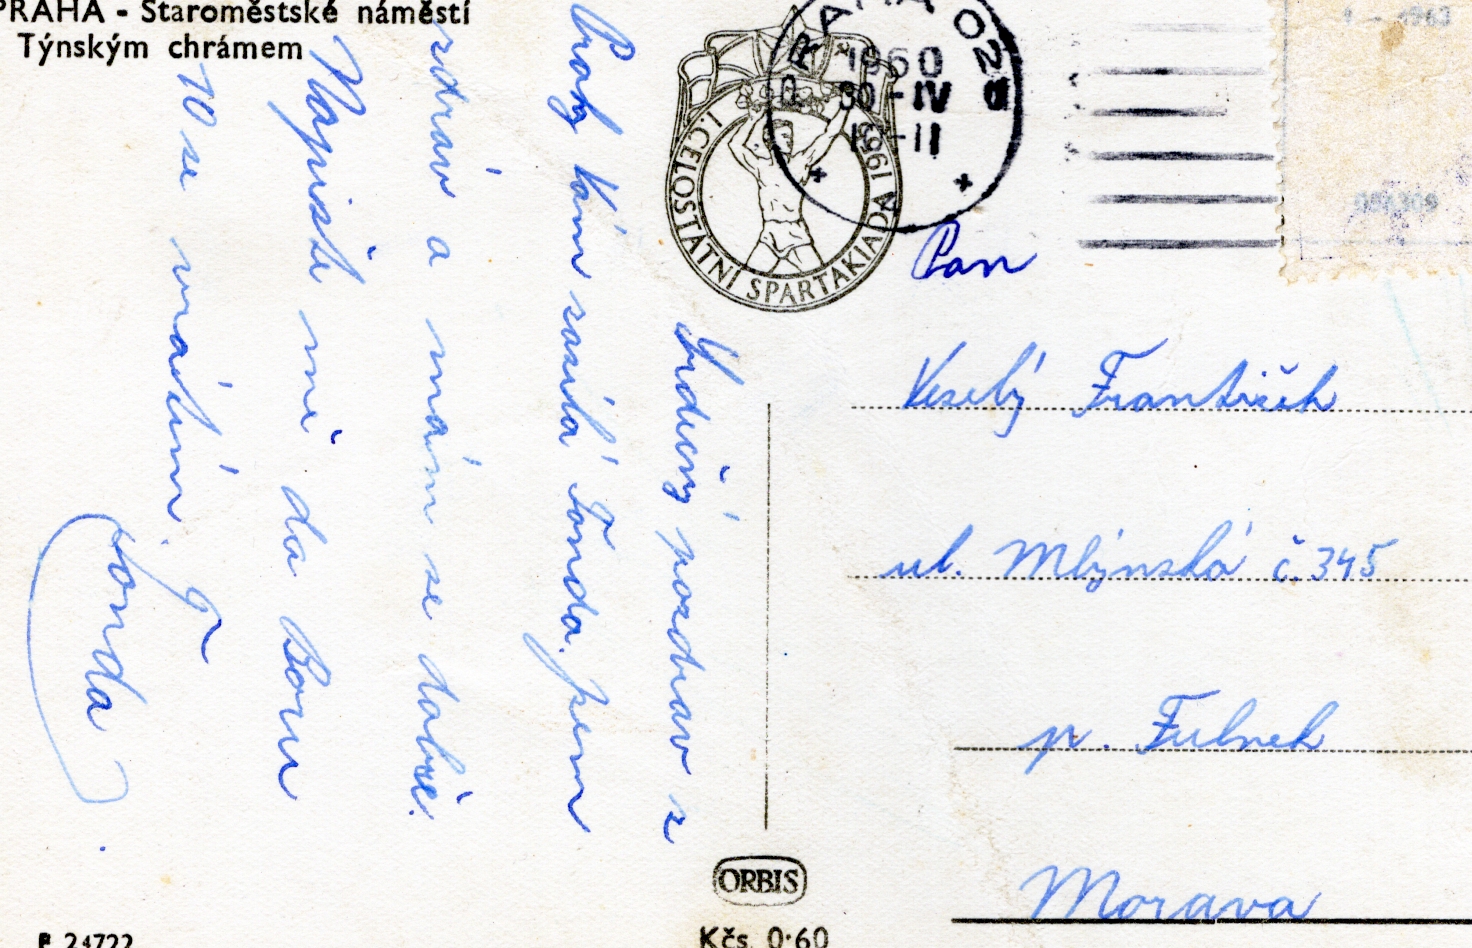 PRAHA - Staroměstské náměstí
Týnským chrámem
Srdečný pozdrav z
Prahy Vám zasílá Tonda. Jsem
zdráv a mám se dobře.
Napište mi do Boru
10 se vrátím.
Tonda
I. CELOSTÁTNÍ SPARTAKIADA 1955
PRAHA 025
1960
30-IV
19-11
Pan
Veselý František
ul. Mlýnská č. 345
p. Fulnek
Morava
ORBIS
Kčs 0·60
24722